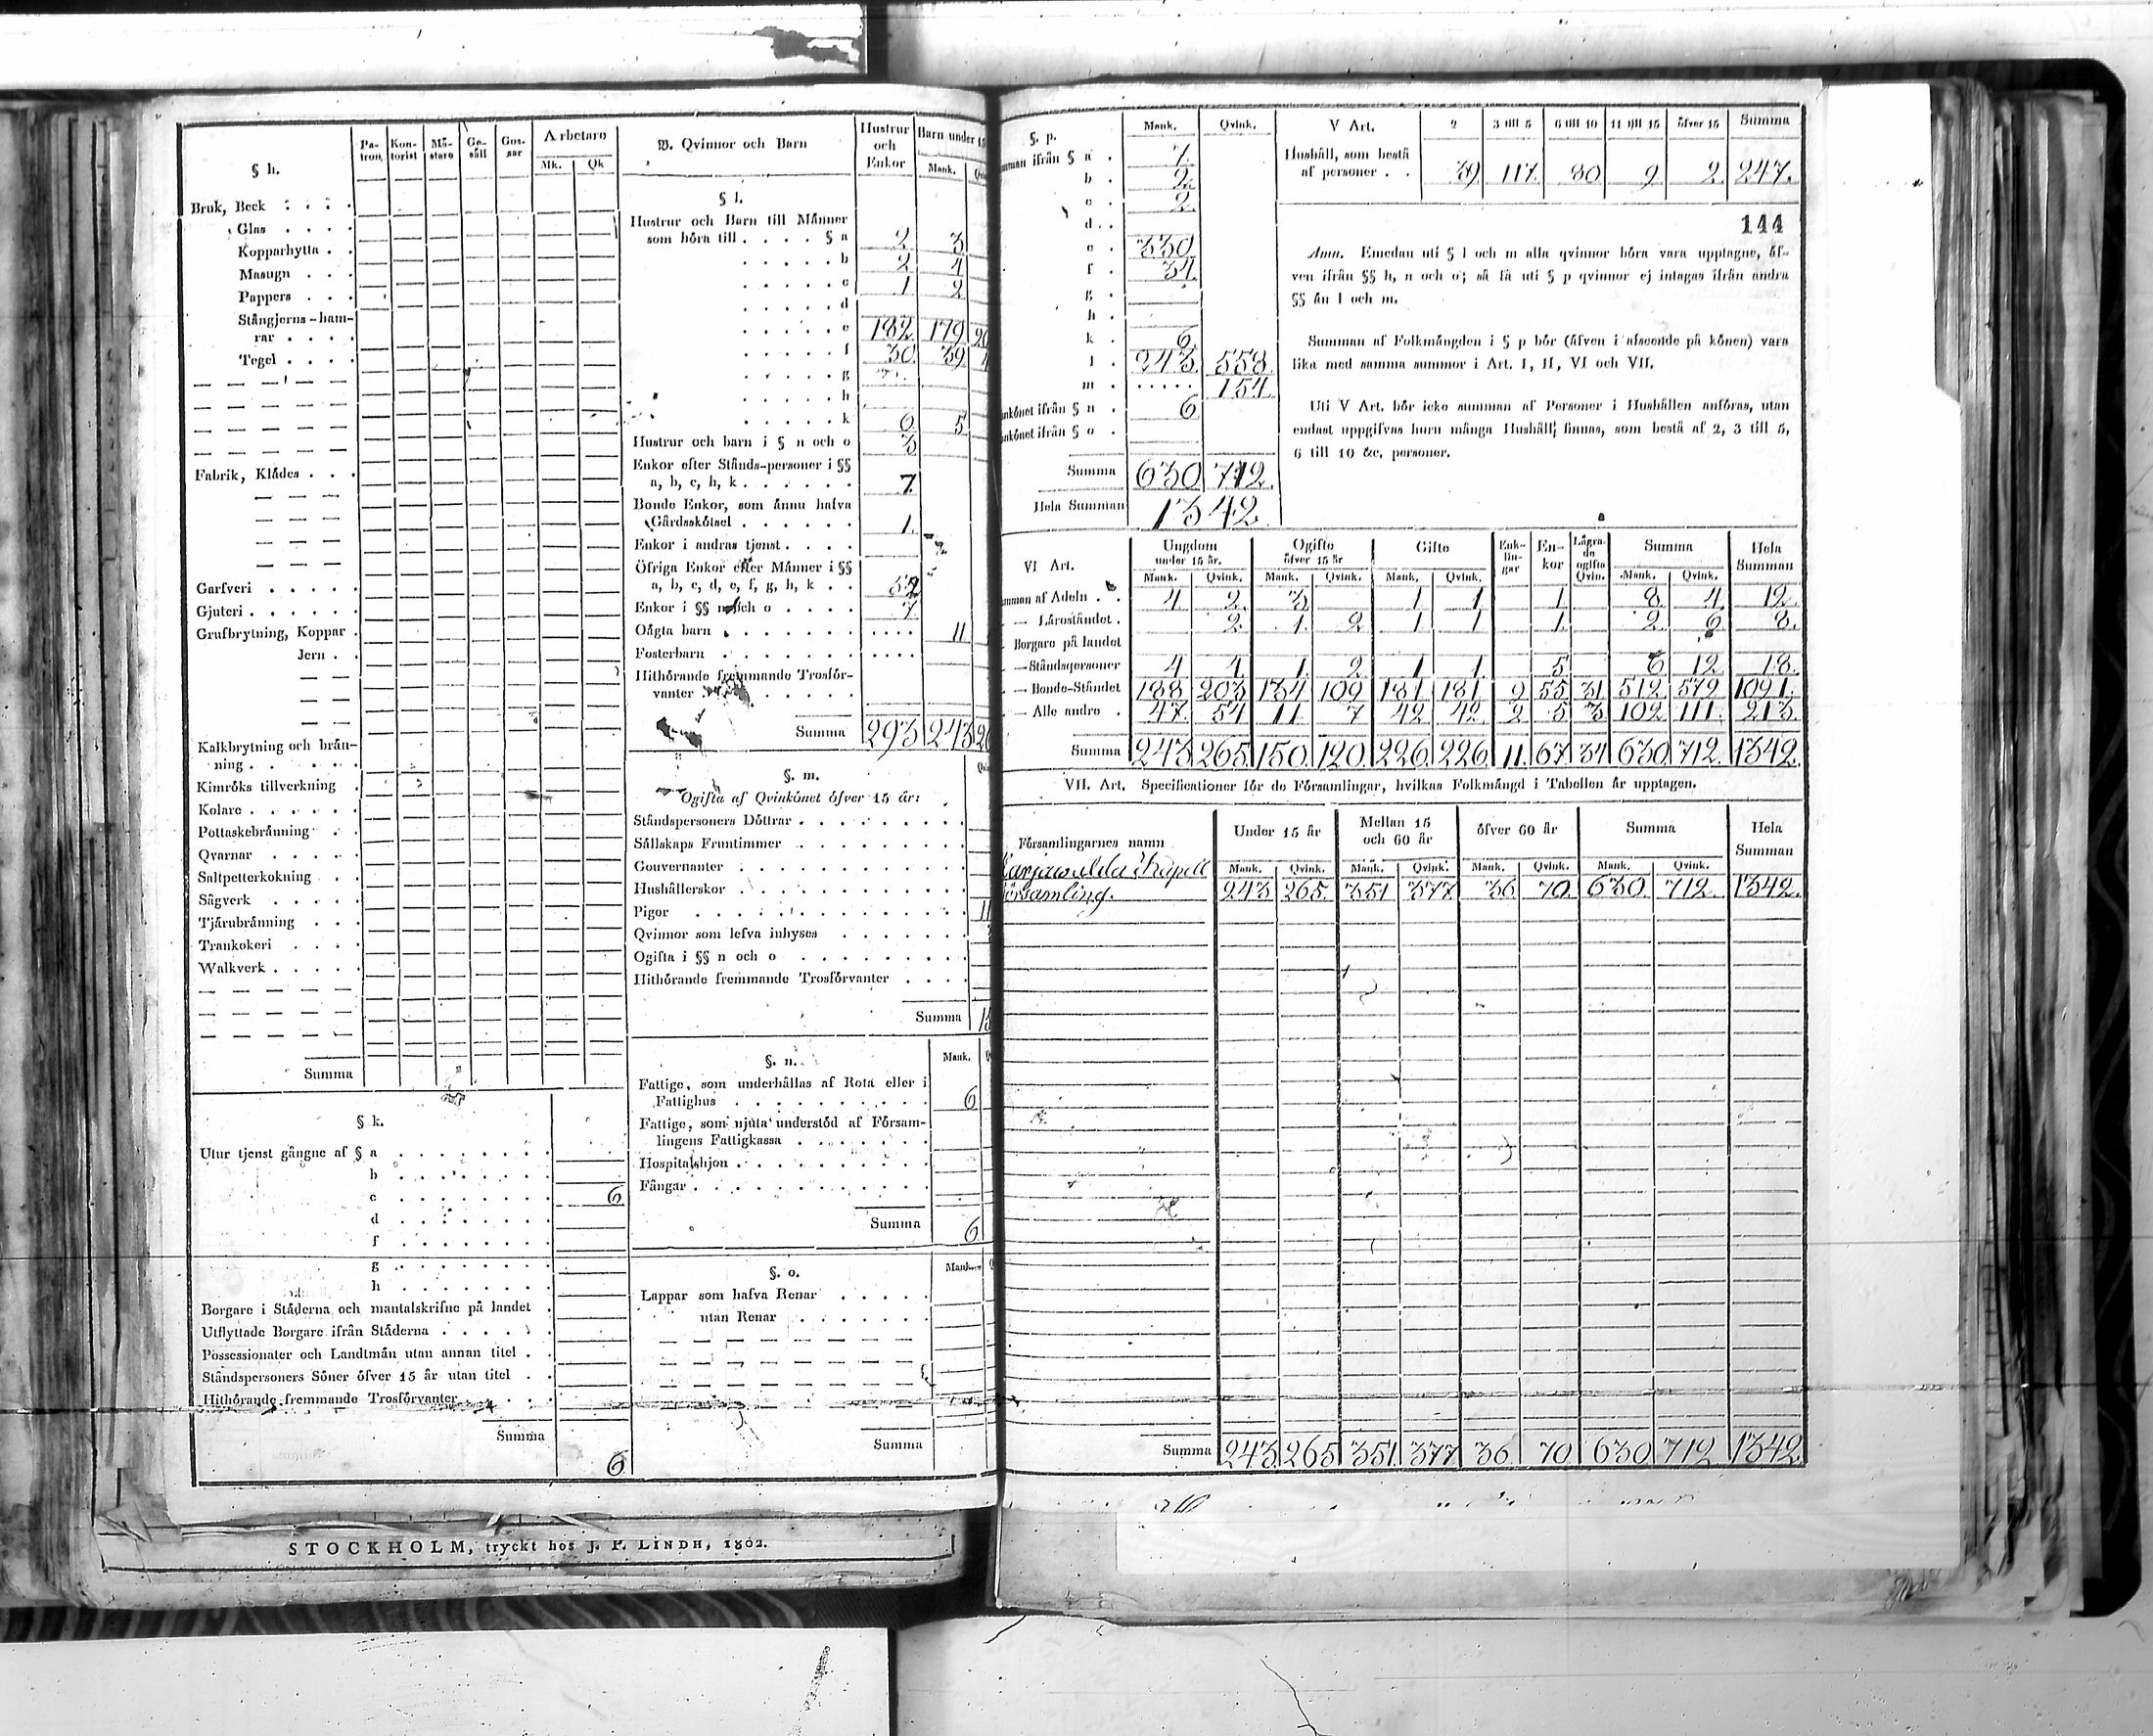 § h.
Pa-
tron,
Kon-
torist
Mä-
stare
Ge-
säll
Gos-
sar
Arbetare
Mk. Qk
Bruk, Beck . . . .
Glas . . . .
Kopparhytta . .
Masugn . . .
Pappers . . .
Stångjerns-ham-
rar . . . .
Tegel . . . .
Fabrik, Klådes . . .
Garfveri . . . . .
Gjuteri . . . . . .
Grufbrytning, Koppar .
Jern . .
Kalkbrytning och brån-
ning . . . . .
Kimröks tillverkning .
Kolare . . . . . .
Pottaskebrånning . .
Qvarnar . . . . .
Saltpetterkokning . .
Sågverk . . . . .
Tjårubrånning . . .
Trankokeri . . . .
Walkverk . . . . .
Summa
§ k.
Utur tjenst gångne af § a . . . . . . . .
b . . . . . . . .
c . . . . . . . . 6
d . . . . . . . .
f . . . . . . . .
g . . . . . . . .
h . . . . . . . .
Borgare i Ståderna och mantalskrifne på landet .
Utflyttade Borgare ifrån Ståderna . . . . . .
Possessionater och Landtmån utan annan titel . .
Ståndspersoners Söner öfver 15 år utan titel . .
Hithörande fremmande Trosförvanter . . . .
Summa
6
B. Qvinnor och Barn
Hustrur
och
Enkor
Barn under 15
Mank.
§ l.
Hustrur och Barn till Månner
som höra till . . . . § a 2 3
. . . . . b 2 4
. . . . . c 1 2
. . . . . d
. . . . . e 182 179
. . . . . f 30 39
. . . . . g
. . . . . h
. . . . . k 5
Hustrur och barn i § n och o 3
Enkor efter Stånds-personer i §§
a, b, c, h, k . . . . . . 7
Bonde Enkor, som ånnu hafva
Gårdsskötsel . . . . . . 1
Enkor i andras tjenst . . . .
Öfriga Enkor efter Månner i §§
a, b, c, d, e, f, g, h, k . . 52
Enkor i §§ n och o . . . . 7
Oågta barn . . . . . . . 11
Fosterbarn . . . . . . .
Hithörande fremmande Trosför-
vanter . . . . . . .
Summa 293 243
§. m.
Ogifta af Qvinkönet öfver 15 år:
Ståndspersoners Döttrar . . . . . . . .
Sållskaps Fruntimmer . . . . . . . .
Gouvernanter . . . . . . . . . .
Hushållerskor . . . . . . . . . .
Pigor . . . . . . . . . . . .
Qvinnor som lefva inhyses . . . . . .
Ogifta i §§ n och o . . . . . . . .
Hithörande fremmande Trosförvanter . . . .
Summa
§. n.
Mank.
Fattige, som underhållas af Rota eller i
Fattighus . . . . . . . . . . 6
Fattige, som njuta understöd af Församl-
lingens Fattigkassa . . . . . . .
Hospitalshjon . . . . . . . . . .
Fångar . . . . . . . . . . . .
Summa 6
§. o.
Lappar som hafva Renar . . . . .
utan Renar . . . . . .
Summa
STOCKHOLM, tryckt hos J. P. LINDH, 1802.
§. p. Mank. Qvink.
ifrån § a . 7
b . 2
c . 2
d . .
e . 330
f . 34
g .
h .
k . 6
l . 243 558
m . . . . . . 154
ifrån § n . 6
ifrån § o .
Summa 630 712
Hela Summan 1342
V Art. 2 3 till 5 6 till 10 11 till 15 öfver 15 Summa
Hushåll, som bestå
af personer . . 39 117 80 9 2 247.
144
Anm. Emedan uti § l och m alla qvinnor böra vara upptagne, åf-
ven ifrån §§ h, n och o; så få uti § p qvinnor ej intagas ifrån andra
§§ ån l och m.
Summan af Folkmångden i § p bör (åfven i afseende på könen) vara
lika med samma summor i Art. I, II, VI och VII.
Uti V Art. bör icke summan af Personer i Hushållen anföras, utan
endast uppgifvas huru många Hushåll finnas, som bestå af 2, 3 till 5,
6 till 10 &c. personer.
VI Art.
Ungdom
under 15 år.
Ogifte
öfver 15 år
Gifte
Enk-
lin-
gar
En-
kor
Lågra-
de
ogifta
Qvin.
Summa
Hela
Summan
Mank. Qvink. Mank. Qvink. Mank. Qvink. Mank. Qvink.
af Adeln . . 4 2 3 1 1 1 8 4 12
— Låroståndet . 2 1 2 1 1 1 2 6 8
Borgare på landet
— Ståndspersoner 4 4 1 2 1 1 5 6 12 18
— Bonde-Ståndet 188 203 134 109 181 181 9 55 31 512 579 1091
— Alle andre . 47 54 11 7 42 42 2 5 3 102 111 213
Summa 243 265 150 120 226 226 11 67 34 630 712 1342
VII. Art. Specificationer för de Församlingar, hvilkas Folkmångd i Tabellen år upptagen.
Församlingarnes namn
Under 15 år
Mellan 15
och 60 år
öfver 60 år
Summa
Hela
Summan
Mank. Qvink. Mank. Qvink. Mank. Qvink. Mank. Qvink.
Kapell
församling. 243 265 351 377 36 70 630 712 1342
Summa 243 265 351 377 36 70 630 712 1342